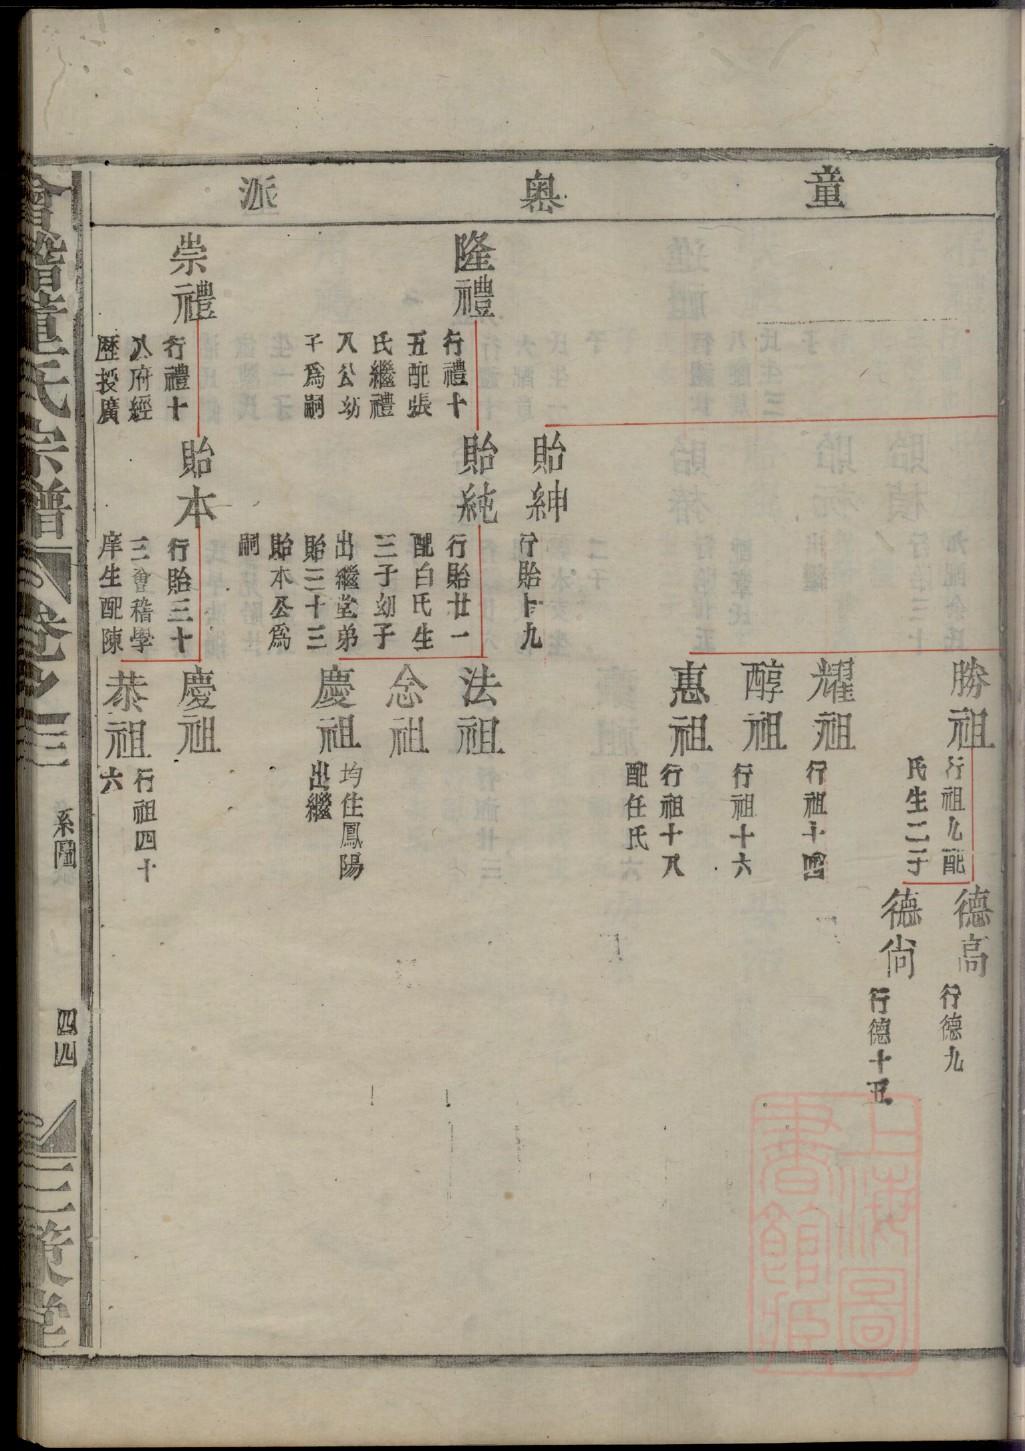 童奧派
勝祖
行祖九配
氏生二子
德高
行德九
德尙
行德十五
耀祖
行祖十四
醇祖
行祖十六
惠祖
行祖十八
配任氏
貽紳
行貽十九
隆禮
行禮十
五配張
氏繼禮
八公幼
子爲嗣
貽純
行貽廿一
配白氏生
三子幼子
出繼堂弟
貽三十三
貽本公爲
嗣
法祖
念祖
慶祖
均住鳳陽
出繼
崇禮
行禮十
八府經
歷授廣
貽本
行貽三十
三會稽學
庠生配陳
慶祖
恭祖
行祖四十
六
會稽童氏宗譜
卷之三
系圖
四四
三策堂
上海圖
書館藏